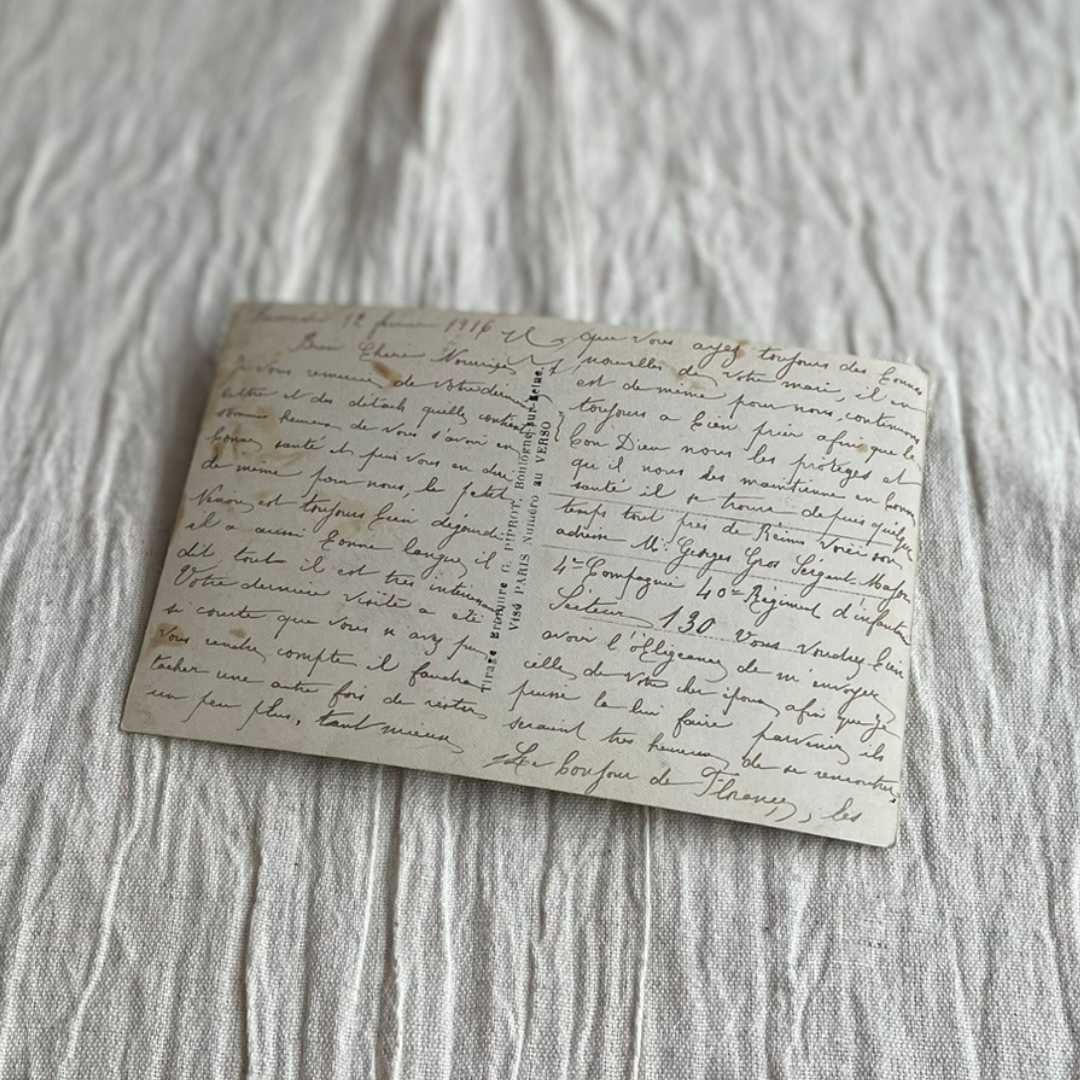 Samedi 12 février 1916
Bien Chère Nourrice
Je Vous remercie de Votre dernière
lettre et des détails quelle contient
sommes heureux de Vous s'avoir en
bonne santé et puis Vous en dire
de même pour nous, le petit
est toujours bien dégourdi
il a aussi bonne langue, il
dit tout il est très intéressant
Votre dernière Visite a été
si courte que Vous n'avez pu
Vous rendre compte il faudra
tacher une autre fois de rester
un peu plus, tant mieux
Tirage Bromure G. PIPROT, Boulogne-sur-Seine.
Visé PARIS Numéro au VERSO
que Vous ayez toujours des bonnes
nouvelles de Votre mari, il en
est de même pour nous, continuons
toujours a bien prier afin que le
bon Dieu nous les protèges et
qu'il nous les maintienne en bonne
santé il se trouve depuis quelque
temps tout près de Reims Voici son
adresse Mr Georges Gros Sergent Major
4e Compagnie 40e Régiment d'infanterie
Secteur 130 Vous Voudrez bien
avoir l'obligeance de m'envoyer
celle de Votre cher époux, afin que je
puisse la lui faire parvenir, ils
seraient très heureux de se rencontrer,
Le bonjour de , les